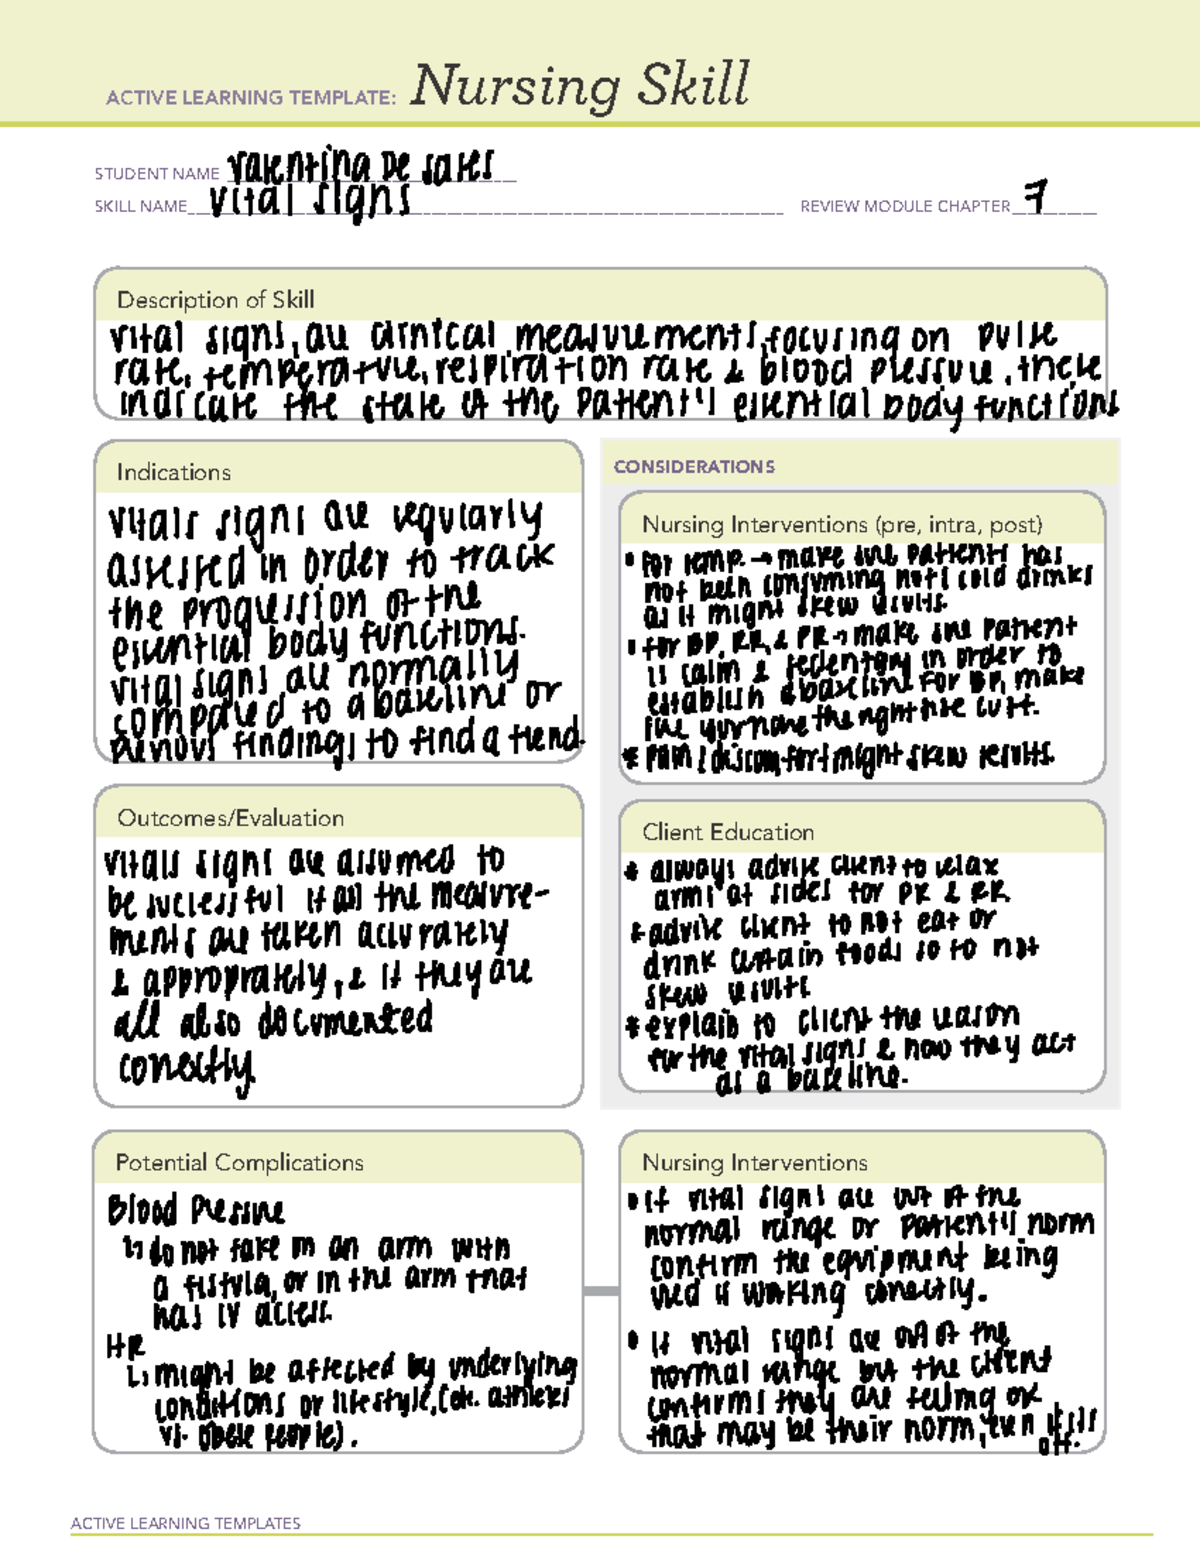 ACTIVE LEARNING TEMPLATE: Nursing Skill
STUDENT NAME Valentina De Sales
SKILL NAME Vital signs REVIEW MODULE CHAPTER 7
Description of Skill
vital signs, are clinical measurements, focusing on pulse
rate, temperature, respiration rate & blood pressure, these
indicate the state of the patient's essential body functions
Indications
vitals signs are regularly
assessed in order to track
the progression of the
essential body functions.
vital signs are normally
compared to a baseline or
previous findings to find a trend.
CONSIDERATIONS
Nursing Interventions (pre, intra, post)
• for temp. → make sure patients has
not been consuming hot & cold drinks
as it might skew results.
• for BP, RR, & PR → make sure patient
is calm & sedentary in order to
establish a baseline. For BP, make
sure your have the right size cuff.
* pain & discomfort might skew results.
Outcomes/Evaluation
vitals signs are assumed to
be successful if all the measure-
ments are taken accurately
& appropriately, & if they are
all also documented
correctly.
Client Education
* always advise client to relax
arms at sides for PR & RR
* advise client to not eat or
drink certain foods so to not
skew results
* explain to client the reason
for the vital signs & how they act
as a baseline.
Potential Complications
Blood Pressure
↳ do not take in an arm with
a fistula, or in the arm that
has IV access.
HR
↳ might be affected by underlying
conditions or lifestyle, (ex. athletes
vs. obese people).
Nursing Interventions
• if vital signs are out of the
normal range or patient's norm
confirm the equipment being
used is working correctly.
• if vital signs are out of the
normal range but the client
confirms they are feeling ok
that may be their norm, even if it's
off.
ACTIVE LEARNING TEMPLATES